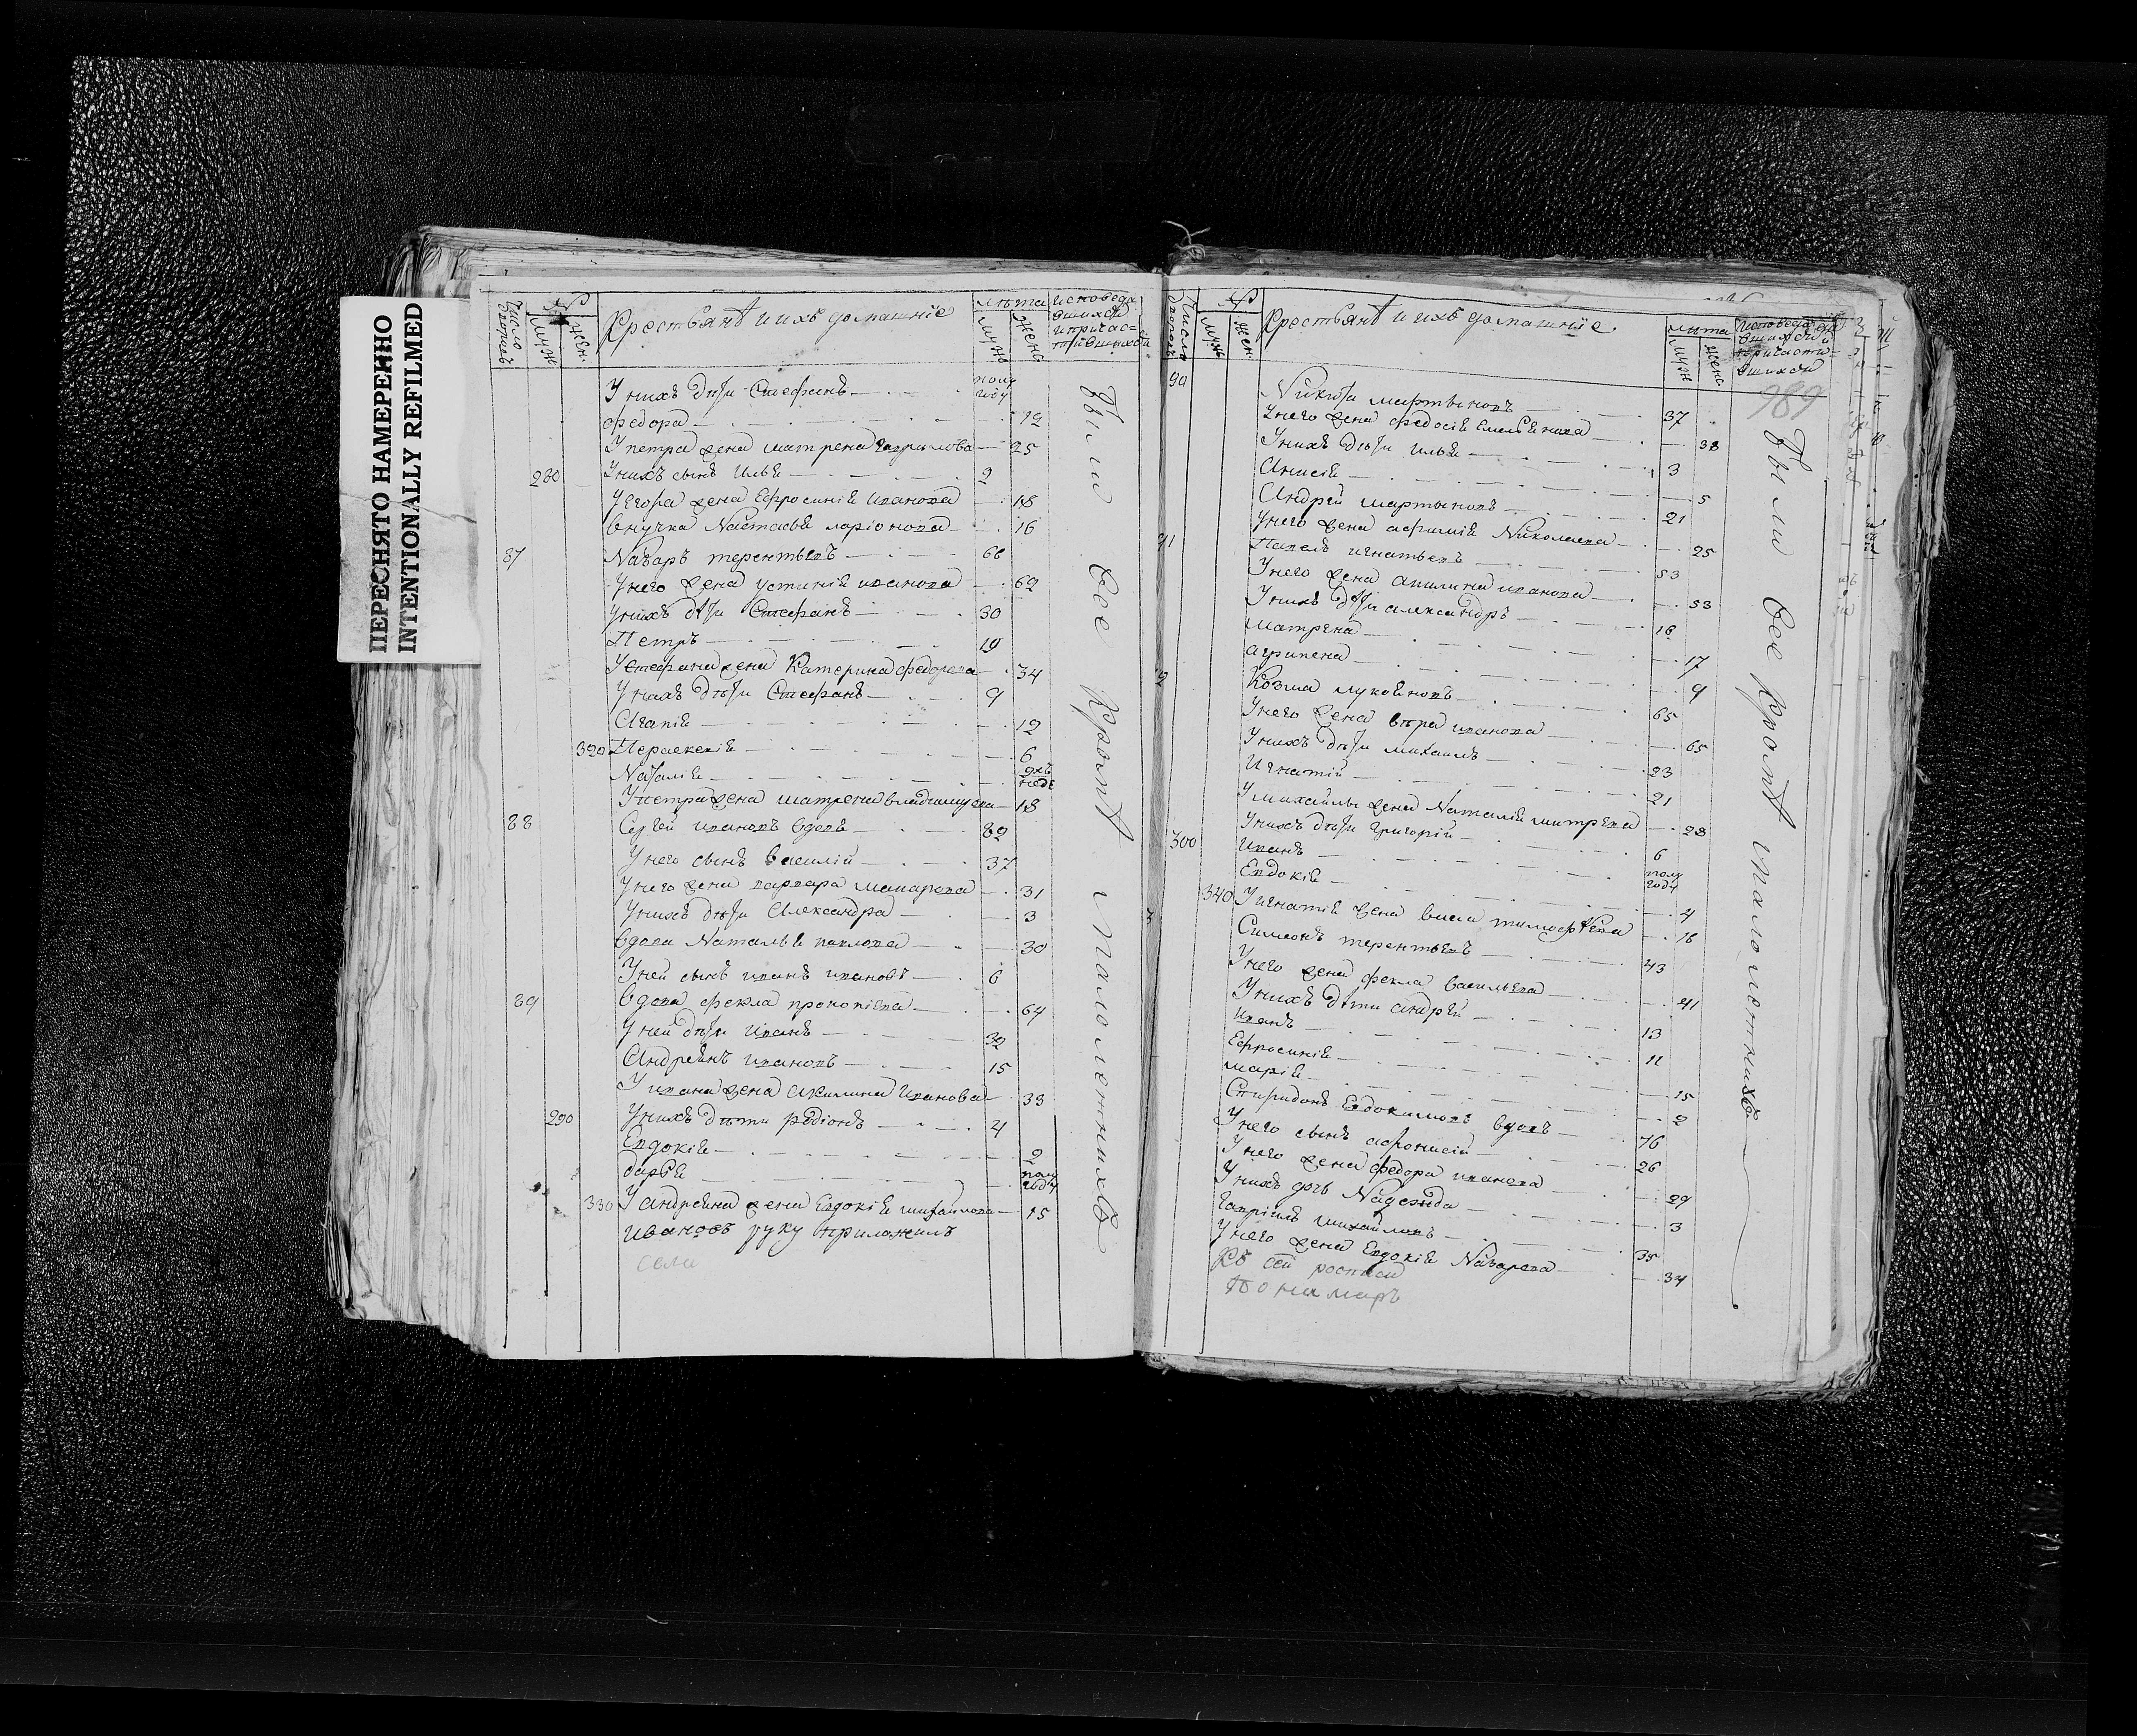 ПЕРЕСНЯТО НАМЕРЕННО
INTENTIONALLY REFILMED
Число дворовъ
№
муж
жен:
Крестьянѣ и ихъ домашніе
лѣта
муж
жен
исповеда
вшихся
и причас=
тившихся
У нихъ дѣти Стефанъ — полу году
федора — 12
У петра жена матрена гаврилова — 25
280 У нихъ сынъ Илья — 2
У Егора жена Ефросинія иванова — 18
внучка Настасья ларіонова — 16
87 Назаръ терентьевъ — 66
У него жена устинія иванова — 62
У нихъ дѣти Стефанъ — 30
Петръ — 19
У Стефана жена Катерина федорова — 34
У нихъ дѣти Стефанъ — 9
Агапія — 12
320 Пераскевія — 6
Наталія — недѣ
У петра жена матрена владимирова — 18
88 Сергей ивановъ вдовъ — 82
У него сынъ василій — 37
У него жена варвара макарова — 31
У нихъ дѣти Александра — 3
вдова Наталья павлова — 30
У ней сынъ иванъ ивановъ — 6
89 вдова фекла прокопіева — 64
У ней дѣти Иванъ — 32
Андреянъ ивановъ — 15
У ивана жена Акилина Иванова — 33
290 У нихъ дѣти родіонъ — 4
Евдокія — 2
дарья — полу году
330 У андреяна жена Евдокія михайлова — 15
ивановъ руку приложилъ
села
Были все кромѣ малолетнихъ
Число дворовъ
№
муж
жен
Крестьянѣ и ихъ домашніе
лѣта
муж
жен
исповеда
вшихся и
причасти=
вшихся
989
90 Никита мартыновъ — 37
У него жена федосія емельянова — 38
У нихъ дѣти илья — 3
Анисія — 5
Андрей мартыновъ — 21
У него жена афимія Николаева — 25
91 Павелъ игнатьевъ — 53
У него жена акилина иванова — 53
У нихъ дѣти александръ — 16
матрена — 17
агрипена — 9
92 Козма лукояновъ — 65
У него жена вѣра иванова — 65
У нихъ дѣти михаилъ — 23
Игнатій — 21
У михайлы жена Наталія митрева — 28
У нихъ дѣти григорій — 6
300 Иванъ — полу году
Евдокія — 4
340 У игнатія жена васа тимофѣева — 16
Симеонъ терентьевъ — 43
У него жена фекла васильева — 41
У нихъ дѣти андрей — 13
Иванъ — 11
Ефросинія — 15
марія — 2
Спиридонъ Евдокимовъ вдовъ — 76
У него сынъ афонасій — 26
У него жена федора иванова — 29
У нихъ дочь Надежда — 3
Гавріилъ михайловъ — 35
У него жена Евдокія Назарова — 34
Къ сей росписи
Пономарь
Были все кромѣ малолетнихъ